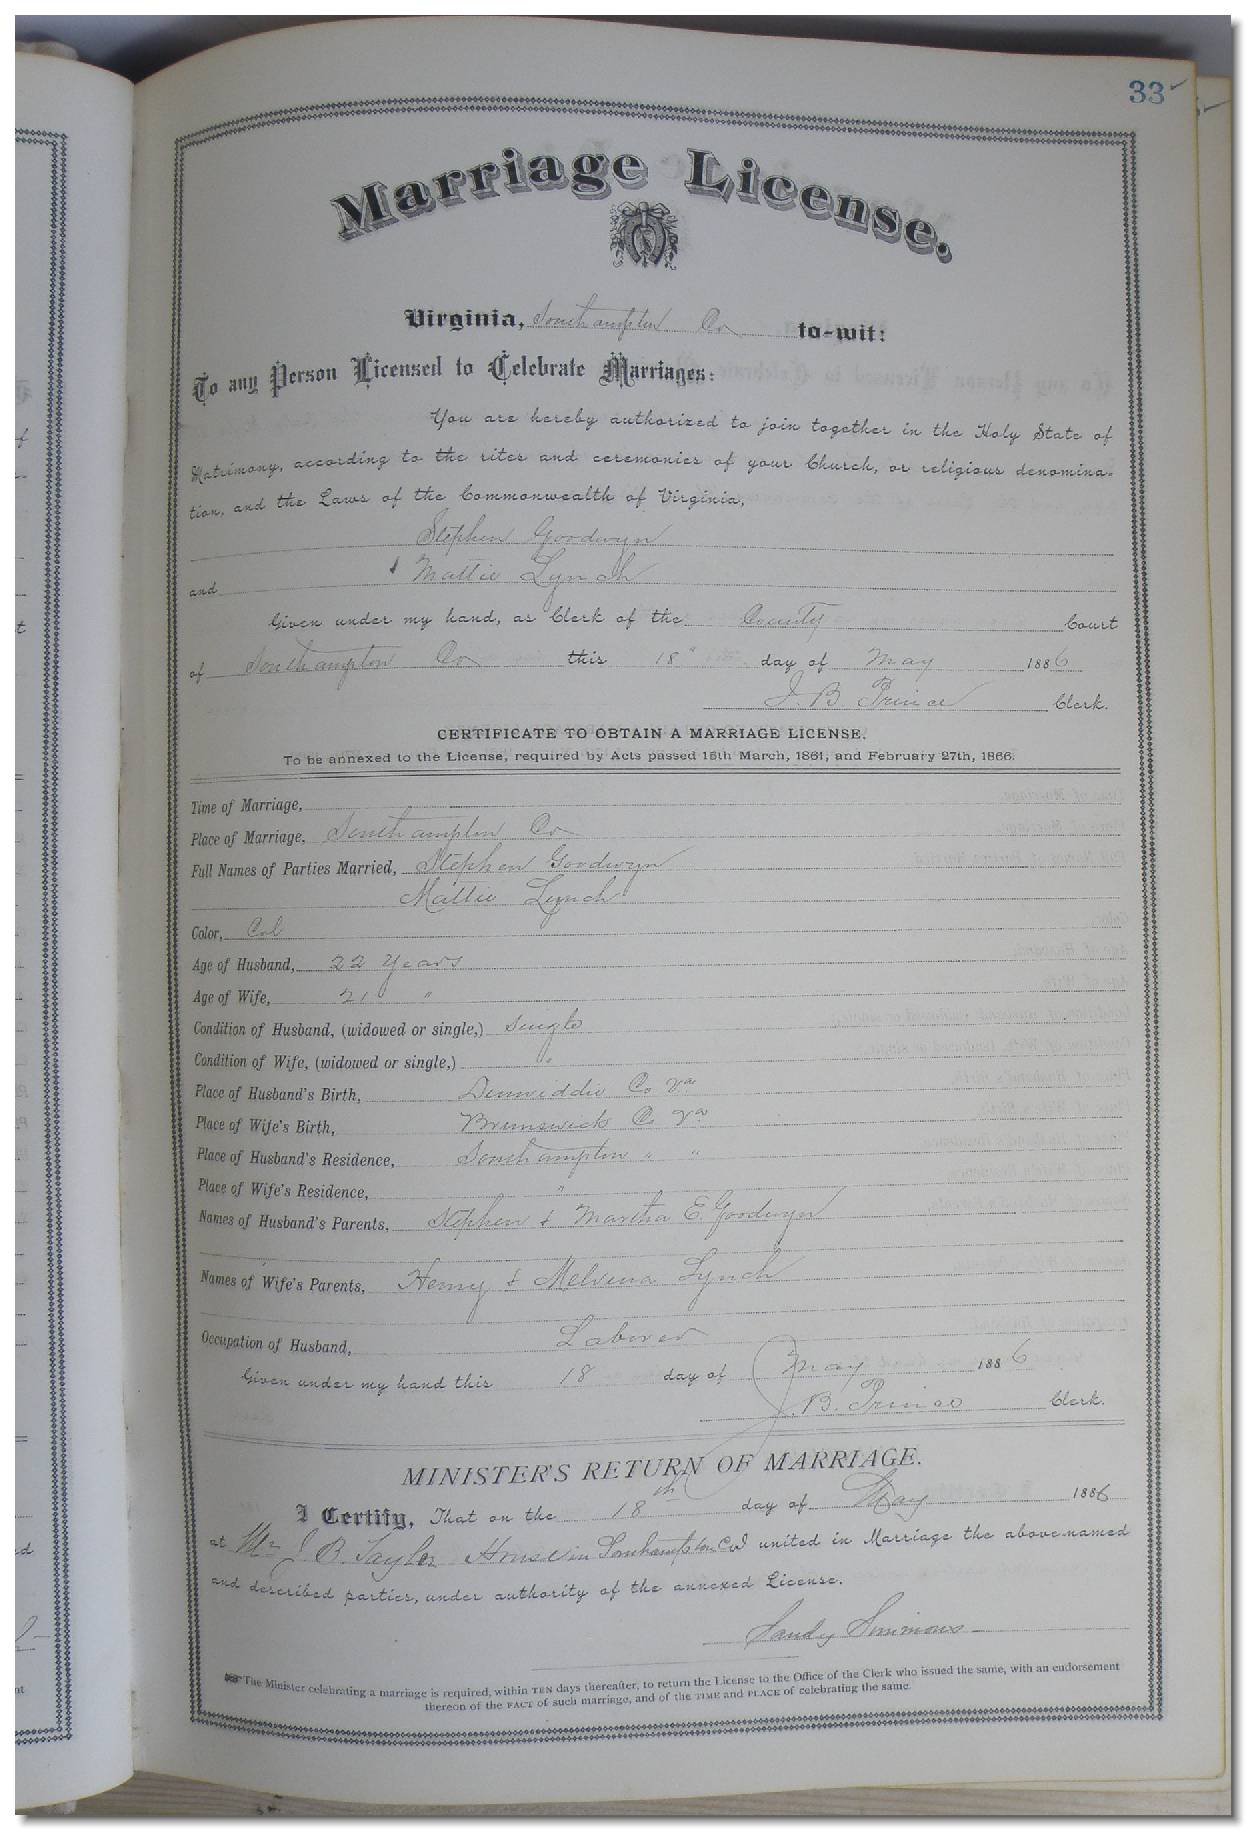 33
Marriage License.
Virginia, Southampton Co to-wit:
To any Person Licensed to Celebrate Marriages:
You are hereby authorized to join together in the Holy State of
Matrimony, according to the rites and ceremonies of your Church, or religious denomina-
tion, and the Laws of the Commonwealth of Virginia,
Stephen Goodwyn
and & Mattie Lynch
Given under my hand, as Clerk of the County Court
of Southampton Co this 18" day of May 1886
J. B. Prince Clerk.
CERTIFICATE TO OBTAIN A MARRIAGE LICENSE.
To be annexed to the License, required by Acts passed 15th March, 1861, and February 27th, 1866.
Time of Marriage,
Place of Marriage, Southampton Co
Full Names of Parties Married, Stephen Goodwyn
Mattie Lynch
Color, Col
Age of Husband, 22 Years
Age of Wife, 21 "
Condition of Husband, (widowed or single,) Single
Condition of Wife, (widowed or single,) "
Place of Husband's Birth, Dinwiddie Co Va
Place of Wife's Birth, Brunswick Co Va
Place of Husband's Residence, Southampton " "
Place of Wife's Residence, "
Names of Husband's Parents, Stephen & Martha E. Goodwyn
Names of Wife's Parents, Henry & Melvina Lynch
Occupation of Husband, Laborer
Given under my hand this 18 day of May 1886
J. B. Prince Clerk.
MINISTER'S RETURN OF MARRIAGE.
I Certify, That on the 18th day of May 1886
at Mr J. B. Taylor House in Southampton Co united in Marriage the above-named
and described parties, under authority of the annexed License.
Sandy Simmons
The Minister celebrating a marriage is required, within TEN days thereafter, to return the License to the Office of the Clerk who issued the same, with an endorsement
thereon of the FACT of such marriage, and of the TIME and PLACE of celebrating the same.